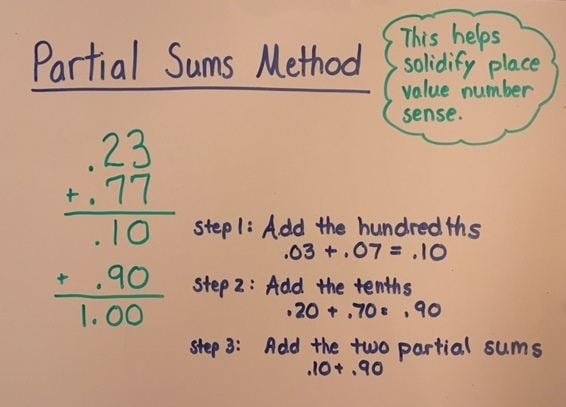 Partial Sums Method
This helps
solidify place
value number
sense.
.23
+.77
.10
+ .90
1.00
Step 1: Add the hundredths
.03 + .07 = .10
Step 2: Add the tenths
.20 + .70 = .90
Step 3: Add the two partial sums
.10 + .90